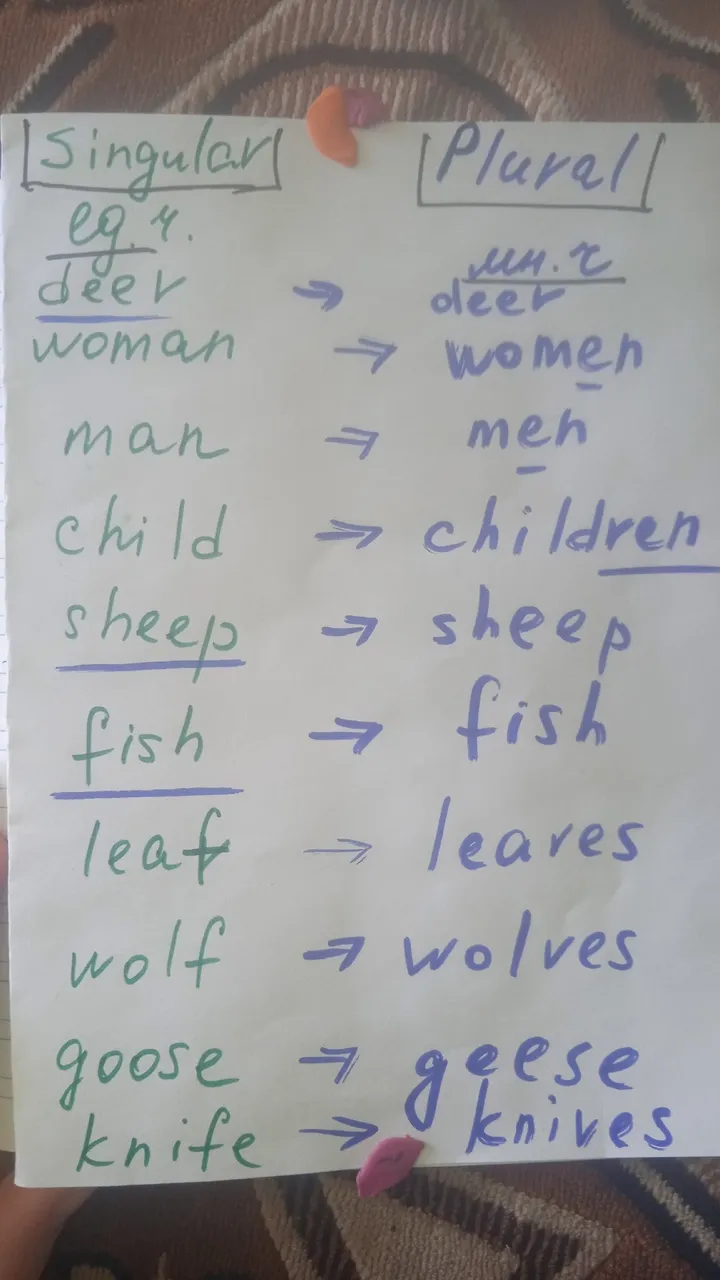 Singular Plural
ед. ч. мн. ч
deer → deer
woman → women
man → men
child → children
sheep → sheep
fish → fish
leaf → leaves
wolf → wolves
goose → geese
knife → knives